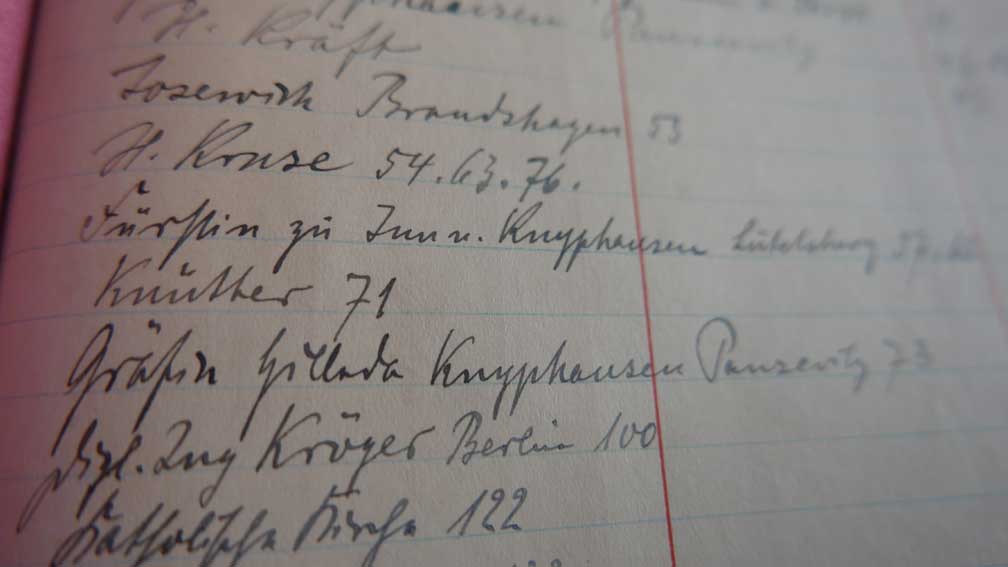 Knyphausen Pansevitz
H. Kräft
Josewich Brandshagen 53
H. Kruse 54.63.76.
Fürstin zu Inn u. Knyphausen Lütetsburg
Knüther 71
Gräfin Hillada Knyphausen Pansevitz 73
Dipl. Ing Kröger Berlin 100
Katholische Kirche 122